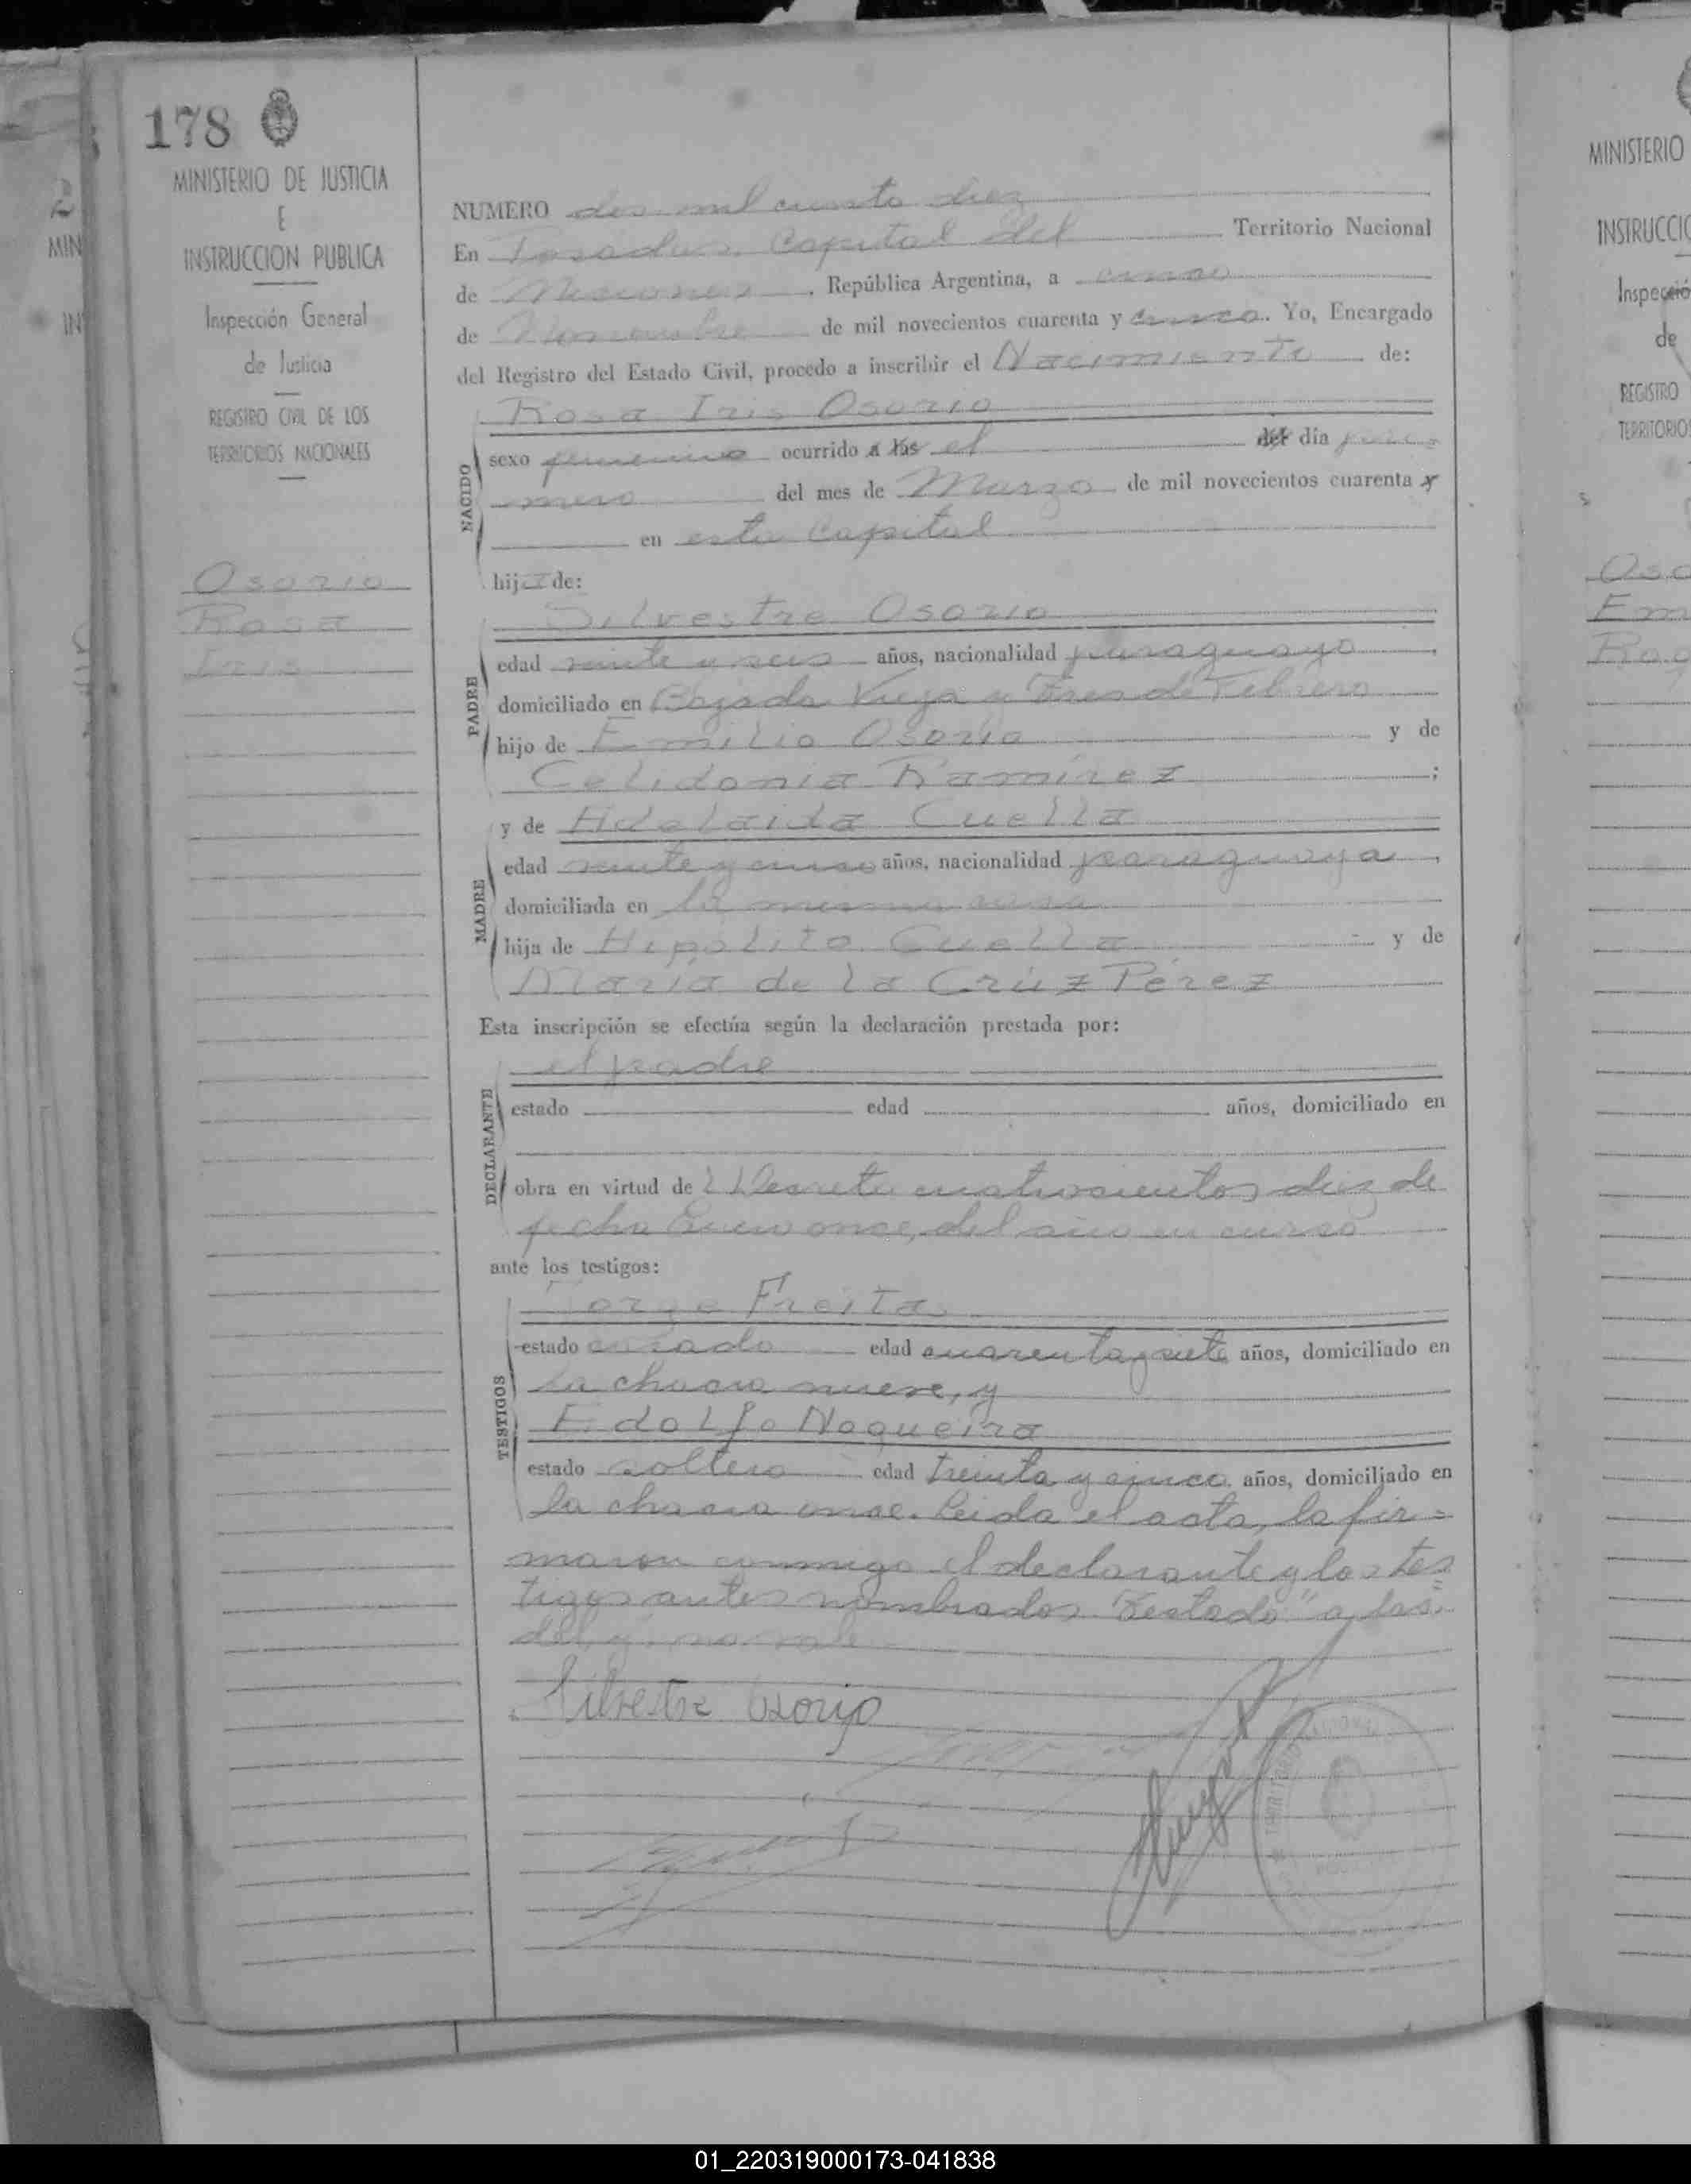 178
MINISTERIO DE JUSTICIA
E
INSTRUCCION PUBLICA
Inspección General
de Justicia
REGISTRO CIVIL DE LOS
TERRITORIOS NACIONALES
Osorio
Rosa
Iris
NUMERO dos mil ciento diez
En Posadas, Capital del Territorio Nacional
de Misiones, República Argentina, a cinco
de Noviembre de mil novecientos cuarenta y cinco. Yo, Encargado
del Registro del Estado Civil, procedo a inscribir el Nacimiento de:
NACIDO
Rosa Iris Osorio
sexo femenino ocurrido a las el del día pri-
mero del mes de Marzo de mil novecientos cuarenta y
en esta Capital
hija de:
PADRE
Silvestre Osorio
edad veinte y seis años, nacionalidad paraguayo,
domiciliado en Bajada Vieja y Tres de Febrero
hijo de Emilio Osorio y de
Celidonia Ramírez;
y de Adelaida Cuella
MADRE
edad veinte y cinco años, nacionalidad paraguaya,
domiciliada en la misma casa
hija de Hipólito Cuella y de
María de la Crúz Pérez
Esta inscripción se efectúa según la declaración prestada por:
DECLARANTE
el padre
estado edad años, domiciliado en
obra en virtud de Decreto cuatrocientos diez de
fecha Enero once, del año en curso
ante los testigos:
TESTIGOS
Jorge Freitas
estado casado edad cuarenta y siete años, domiciliado en
la chacra nueve, y
dolfo Nogueira
estado soltero edad treinta y cinco años, domiciliado en
la chacra once. Leida el acta, la fir=
maron conmigo el declarante y los tes
tigos antes nombrados. Testado "a las-
del, y, no vale
Silvestre Osorio
MINISTERIO
INSTRUCCIO
Inspecció
de
REGISTRO
TERRITORIO
Oso
Em
01_220319000173-041838